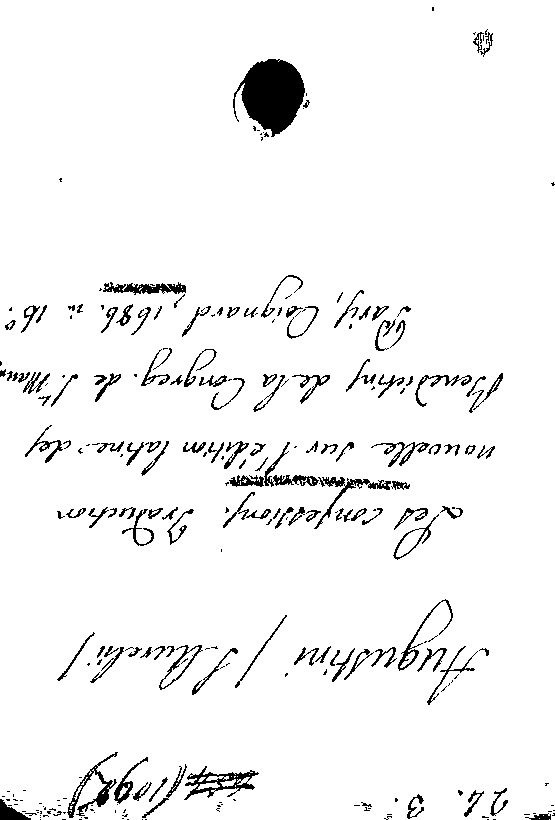 24. 3. (1092)
Augustini (S. Aurelii)
Les confessions. Traduction
nouvelle sur l'édition latine des
Benedictins de la Congreg. de S. Maur
Paris, Coignard, 1686. in 16°.